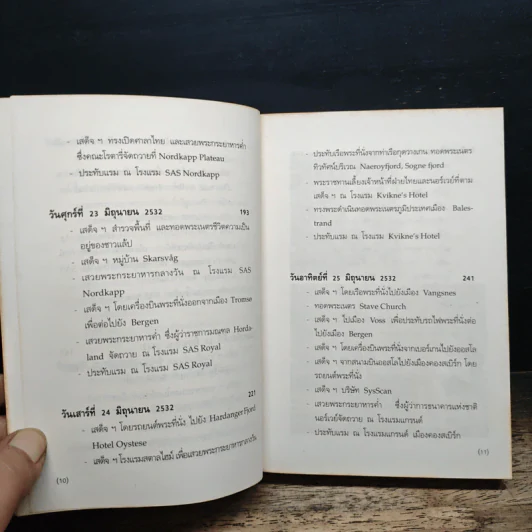 - เสด็จ ฯ ทรงเปิดศาลาไทย และเสวยพระกระยาหารค่ำ
ซึ่งคณะโรตารี่จัดถวายที่ Nordkapp Plateau
- ประทับแรม ณ โรงแรม SAS Nordkapp
วันศุกร์ที่ 23 มิถุนายน 2532 193
- เสด็จ ฯ สำรวจพื้นที่ และทอดพระเนตรชีวิตความเป็น
อยู่ของชาวแล็ป
- เสด็จ ฯ หมู่บ้าน Skarsvåg
- เสวยพระกระยาหารกลางวัน ณ โรงแรม SAS
Nordkapp
- เสด็จ ฯ โดยเครื่องบินพระที่นั่งออกจากเมือง Tromsø
เพื่อต่อไปยัง Bergen
- เสวยพระกระยาหารค่ำ ซึ่งผู้ว่าราชการมณฑล Horda-
land จัดถวาย ณ โรงแรม SAS Royal
- ประทับแรม ณ โรงแรม SAS Royal
วันเสาร์ที่ 24 มิถุนายน 2532 221
- เสด็จ ฯ โดยรถยนต์พระที่นั่ง ไปยัง Hardanger Fjord
Hotel Oystese
- เสด็จ ฯ โรงแรมสตาลไฮม์ เพื่อเสวยพระกระยาหารกลางวัน
(10)
- ประทับเรือพระที่นั่งจากท่าเรือกุดวานเกน ทอดพระเนตร
ทิวทัศน์บริเวณ Naeroyfjord, Sogne fjord
- พระราชทานเลี้ยงเจ้าหน้าที่ฝ่ายไทยและนอร์เวย์ที่ตาม
เสด็จ ฯ ณ โรงแรม Kvikne's Hotel
- ทรงพระดำเนินทอดพระเนตรภูมิประเทศเมือง Bales-
trand
- ประทับแรม ณ โรงแรม Kvikne's Hotel
วันอาทิตย์ที่ 25 มิถุนายน 2532 241
- เสด็จ ฯ โดยเรือพระที่นั่งไปยัง Vangsnes
- ทอดพระเนตร Stave Church
- เสด็จ ฯ ไปเมือง Voss เพื่อประทับรถไฟพระที่นั่งต่อ
ไปยังเมือง Bergen
- เสด็จ ฯ โดยเครื่องบินพระที่นั่งจากเบอร์เกนไปยังออสโล
- เสด็จ ฯ จากสนามบินออสโลไปยังเมืองคองสเบิร์ก โดย
รถยนต์พระที่นั่ง
- เสด็จ ฯ บริษัท SysScan
- เสวยพระกระยาหารค่ำ ซึ่งผู้ว่าการธนาคารแห่งชาติ
นอร์เวย์จัดถวาย ณ โรงแรมแกรนด์
- ประทับแรม ณ โรงแรมแกรนด์ เมืองคองสเบิร์ก
(11)